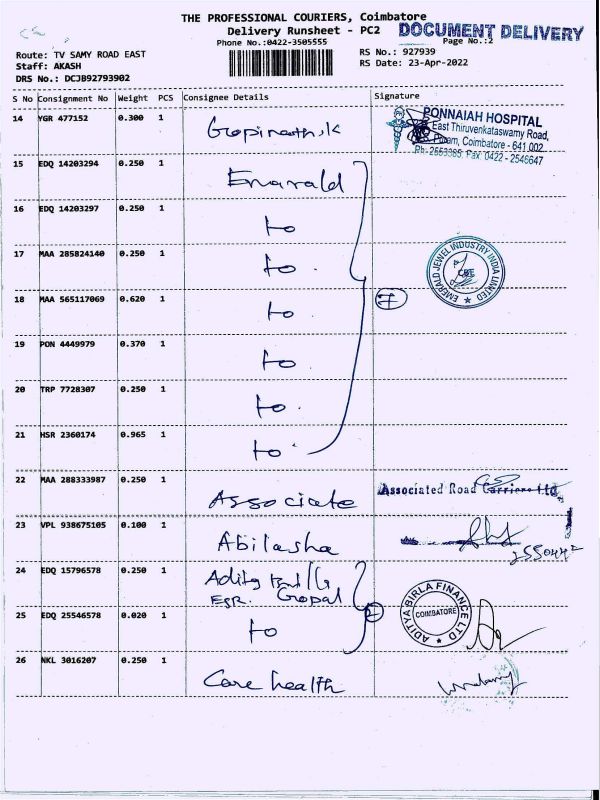 THE PROFESSIONAL COURIERS, Coimbatore
Delivery Runsheet - PC2 DOCUMENT DELIVERY
Phone No.:0422-3505555 Page No.:2
Route: TV SAMY ROAD EAST RS No.: 927939
Staff: AKASH RS Date: 23-Apr-2022
DRS No.: DCJB92793902
S No Consignment No Weight PCS Consignee Details Signature
14 YGR 477152 0.300 1 Gopinath.k
PONNAIAH HOSPITAL
East Thiruvenkataswamy Road,
Puram, Coimbatore - 641 002
Ph- 2553385, Fax 0422 - 2546647
15 EDQ 14203294 0.250 1 Emarald
16 EDQ 14203297 0.250 1 to
17 MAA 285824140 0.250 1 to
EMERALD JEWEL INDUSTRY INDIA LIMITED
CBE
18 MAA 565117069 0.620 1 to 7
19 PON 4449979 0.370 1 to
20 TRP 7728307 0.250 1 to
21 HSR 2360174 0.965 1 to
22 MAA 288333987 0.250 1 Associate Associated Road Carriers Ltd.
23 VPL 938675105 0.100 1 Abilasha
24 EDQ 15796578 0.250 1 Aditya
Gopal
25 EDQ 25546578 0.020 1 to
ADITYA BIRLA FINANCE LTD
COIMBATORE
26 NKL 3016207 0.250 1 Care health